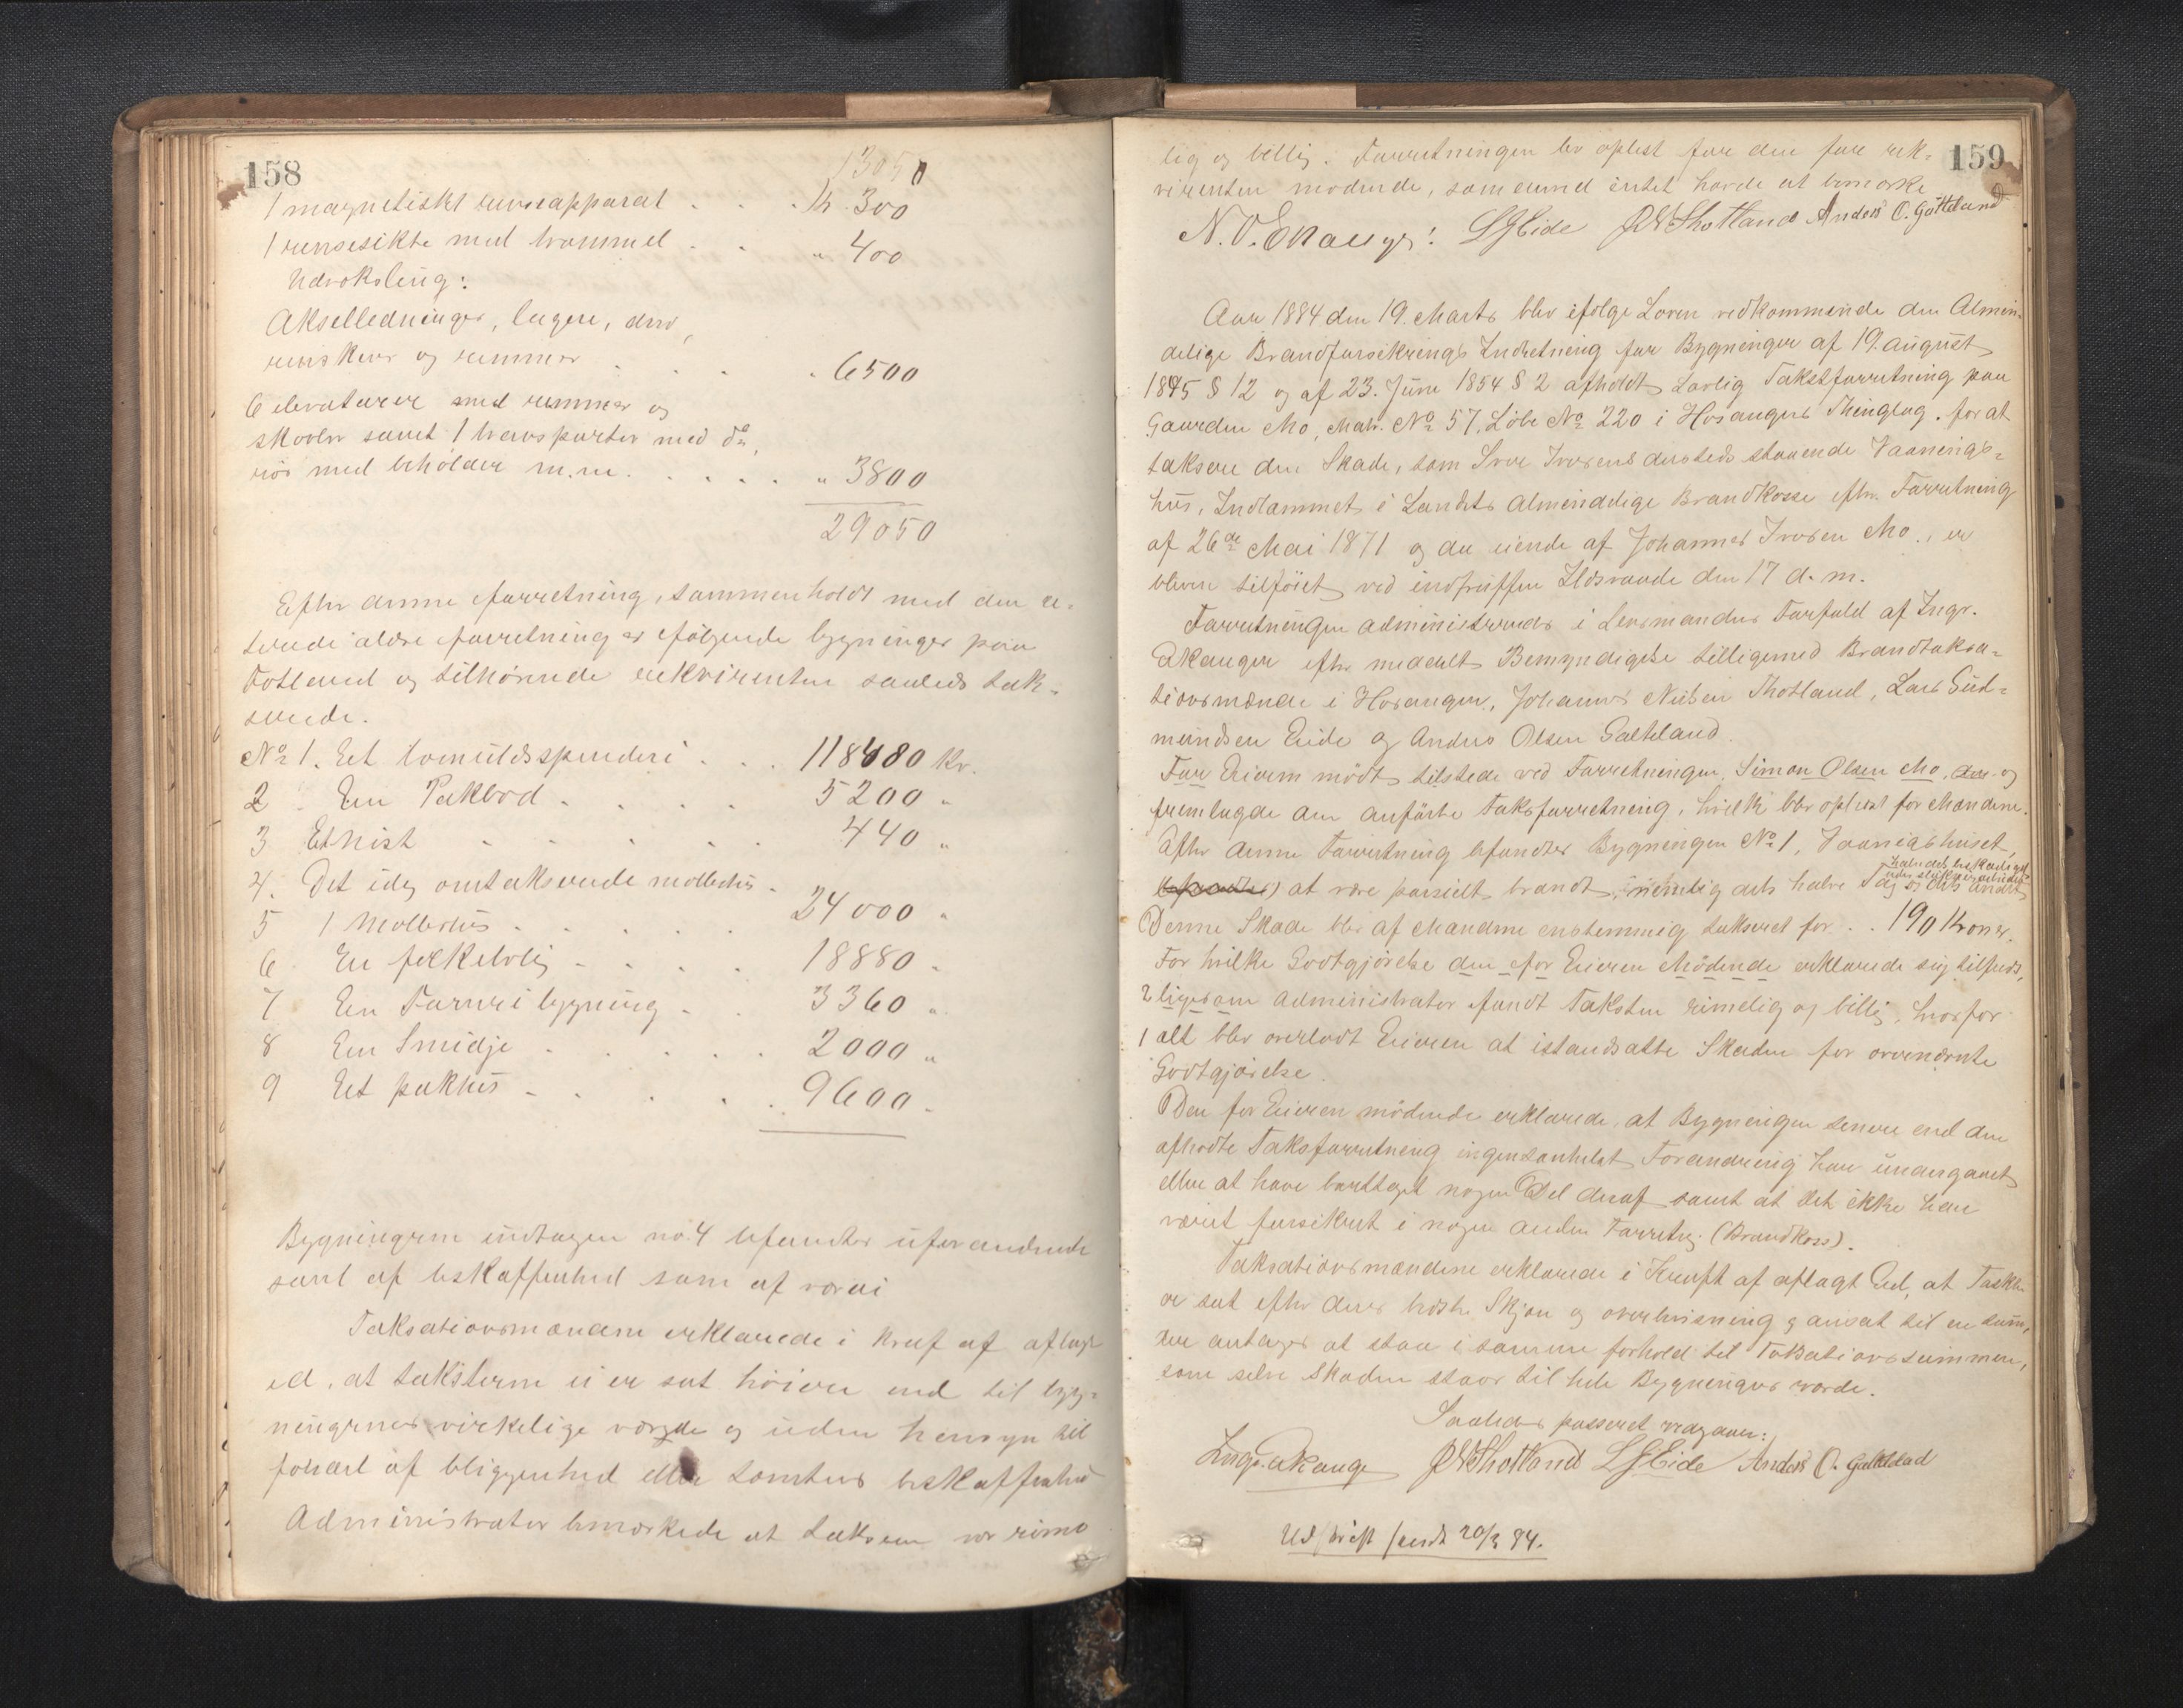 158
13050
1 magnetiskt renseapparat . . . kr. 300
1 rensesikte med trommel . . " 400
Udveksling:
Akselledninger, lagere, driv
renskiver og remmer . . . . 6500
6 elevatorer med remmer og
skovler samt 1 transportør med do,
rør med beholder m.m. . . . . . " 3800
29050
Efter denne forretning, sammenholdt med den ci-
terede ældre forretning er følgende bygninger paa
Fotland og tilhørende rekvirenten saaledes tak-
serede.
No 1. Eet bomuldsspinderi . . . 118480 kr.
2 En Pakbod . . . . 5200 "
3 Et Nøst . . . . . 440 "
4. Det idag omtakserede møllehus .
5 1 Møllehus . . . . . 24000 "
6 En folkebolig . . . . 18880 "
7 En Farveribygning . . 3360 "
8 En Smidje . . . . . 2000 "
9 Eet pakhus . . . . . 9600 "
Bygningerne undtagen no. 4 befandtes uforandrede
samt af beskaffenhed som af
Taksationsmændene erklærede i Kraf af aflagt
ed, at taksterne ei er sat høiere end til byg-
ningernes virkelige værde og uden hensyn til
fordel af bliggenhed eller tomtens beskaffenhed
Administrator bemærkede at taksten var rime
159
lig og billig. Forretningen blev oplæst for den for rek-
virenten mødende, som dermed intet havde at bemærke
N. V. Ekanger. LGEide JNShotland Anders O. Galteland
Aar 1884 den 19. Marts blev ifølge Loven vedkommende den Almin-
delige Brandforsikrings Indretning for Bygninger af 19. august
1845 § 12 og af 23. Juni 1854 § 2 afholdt Lovlig Takstforretning paa
Gaarden Mo, Matr. No 57, Løbe No 220 i Hosangers Thinglag. for at
taksere den Skade, som Iver Iversens dersteds staaende Vaanings-
hus, Indlemmet i Landets almindelige Brandkasse efter Forretning
af 26de Mai 1871 og nu eiende af Johannes Iversen Mo, er
bleven tilføiet ved indtruffen Ildsvaade den 17 d. m.
Forretningen administreredes i Lensmandens Forfald af Ingr.
Ekanger efter meddelt Bemyndigelse tilligemed Brandtaksa-
tionsmænde i Hosanger, Johannes Nilsen Thotland, Lars Gud-
mundsen Eide og Anders Olsen Galteland.
For Eieren mødte tilstede ved Forretningen, Simon Olsen Mo, og
fremlagde den anførte Taksforretning, hvilke blev oplæst for Mændene.
Efter denne Forretning befandtes Bygningen No 1, Vaaningshuset,
at være parsielt brandt, nemlig dets halve Tag og dets andet
Denne Skade blev af Mændene enstemmig takseret for . . 190 Kroner.
For hvilke Godtgjørelse den for Eieren Mødende erklærede sig tilfreds,
2 ligesom administrator fandt Taksten rimelig og billig, hvorfor
1 alt blev overladt Eieren at istandsætte Skaden for ovennævnte
Godtgjørelse.
Den for Eieren mødende erklærede, at Bygningen senere end den
afholdte Taksforretning ingensomhelst Forandring har undergaaet
eller at have borttaget nogen Del deraf samt at det ikke har
været forsikret i nogen anden Forretng. (Brandkass).
Taksationsmændene erklærede i Kraft af aflagt Eed, at Taksten
er sat efter deres bedste Skjøn og overbevisning og ansat til en sum,
der antages at staa i samme forhold til Taksationssummen,
som selve Skaden staar til hele Bygningens værde.
Saaledes passeret vedgaaes:
Ingr. Ekanger JNShotland LGEide Anders O. Galteland
Udskrift sendt 20/3 84.